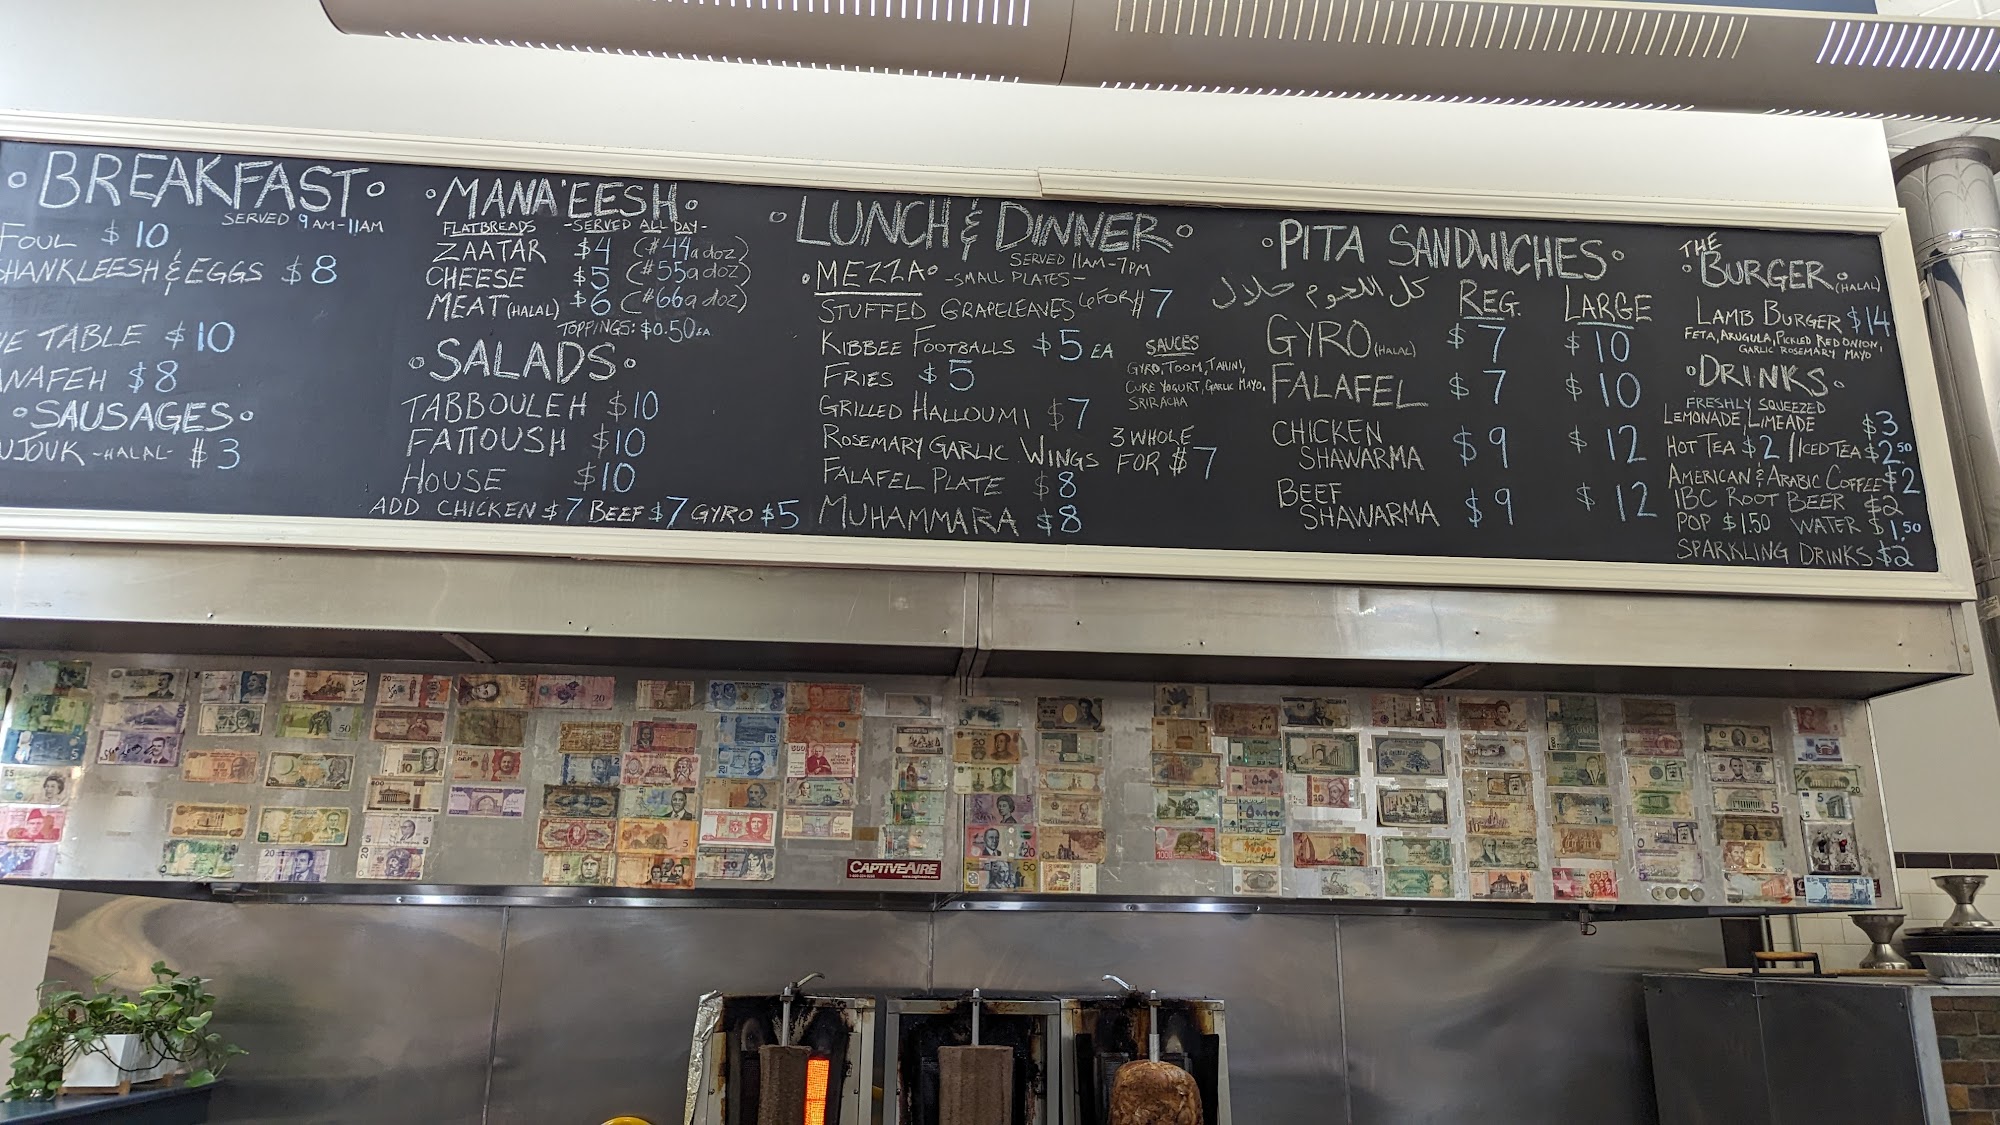 BREAKFAST
SERVED 9AM-11AM
FOUL $10
SHANKLEESH & EGGS $8
TABLE $10
$8
SAUSAGES
-HALAL- $3
MANA'EESH
FLATBREADS -SERVED ALL DAY-
ZAATAR $4 ($44 a doz)
CHEESE $5 ($55 a doz)
MEAT (HALAL) $6 ($66 a doz)
TOPPINGS: $0.50 EA
SALADS
TABBOULEH $10
FATTOUSH $10
HOUSE $10
ADD CHICKEN $7 BEEF $7 GYRO $5
LUNCH & DINNER
SERVED 11AM-7PM
MEZZA -SMALL PLATES-
STUFFED GRAPELEAVES 6 FOR $7
KIBBEE FOOTBALLS $5 EA
FRIES $5
GRILLED HALLOUMI $7
ROSEMARY GARLIC WINGS 3 WHOLE FOR $7
FALAFEL PLATE $8
MUHAMMARA $8
SAUCES
GYRO, TOOM, TAHINI,
CUKE YOGURT, GARLIC MAYO,
SRIRACHA
PITA SANDWICHES
كل اللحوم حلال
REG. LARGE
GYRO (HALAL) $7 $10
FALAFEL $7 $10
CHICKEN
SHAWARMA $9 $12
BEEF
SHAWARMA $9 $12
THE
BURGER (HALAL)
LAMB BURGER $14
FETA, ARUGULA, PICKLED RED ONION,
GARLIC ROSEMARY MAYO
DRINKS
FRESHLY SQUEEZED
LEMONADE, LIMEADE $3
HOT TEA $2 / ICED TEA $2.50
AMERICAN & ARABIC COFFEE $2
IBC ROOT BEER $2
POP $1.50 WATER $1.50
SPARKLING DRINKS $2
CAPTIVEAIRE